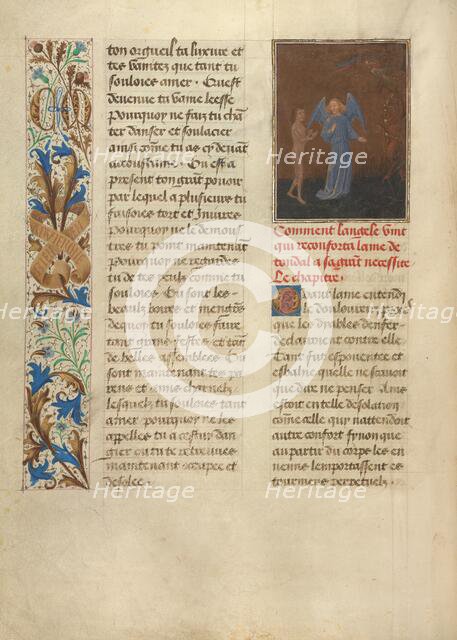 ton orgueil ta luxure et
tes vanitez que tant tu
souloies amer. Quest
devenue tu vame leesse
Pourquoy ne fais tu chan
ter danser et soulacier
ainsi comme tu as cy devant
acoustume. Ou est a
present ton grant pouoir
par lequel a plusieurs tu
faisoies tort et Iniures
Pourquoy ne le demous
tres tu point maintenant
Pourquoy ne regardes
tu de tes yeulx comme tu
souloies. Ou sont les
beaulx boire et mengiers
dequoy tu souloies faire
tant grant feste et tant
de belles assemblees Ou
sont maintenant tes pa
rens et amis charnelz
lesquelz tu souloies tant
amer pourquoy ne les
appelles tu a cestui dan
gier ou tu te retreuves
maintenant occupee et
desolee.
Comment langele vint
qui reconforta lame de
tondal a sa grant necessite
Le chapitre.
Quant lame entendy
le douloureux
que les dyables denfer
declairoient contre elle
fut si espouentee et
esbahie quelle ne scauoit
que dire ne penser. Ains
estoit en telle desolation
comme celle qui nattendoit
autre confort synon que
au partir du corps les en
nemis lemportassent es
tourmens perpetuelz.
Heritage
Heritage
Heritage
Heritage
Heritage
Heritage
Heritage
Heritage
Heritage
©